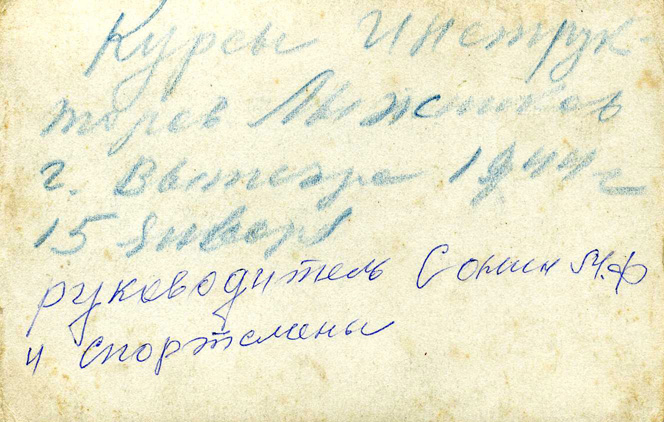 Курсы Инструк-
торов Лыжников
г. Вытегра 1944 г
15 января
руководитель Сонин М.Ф
и спортсмены